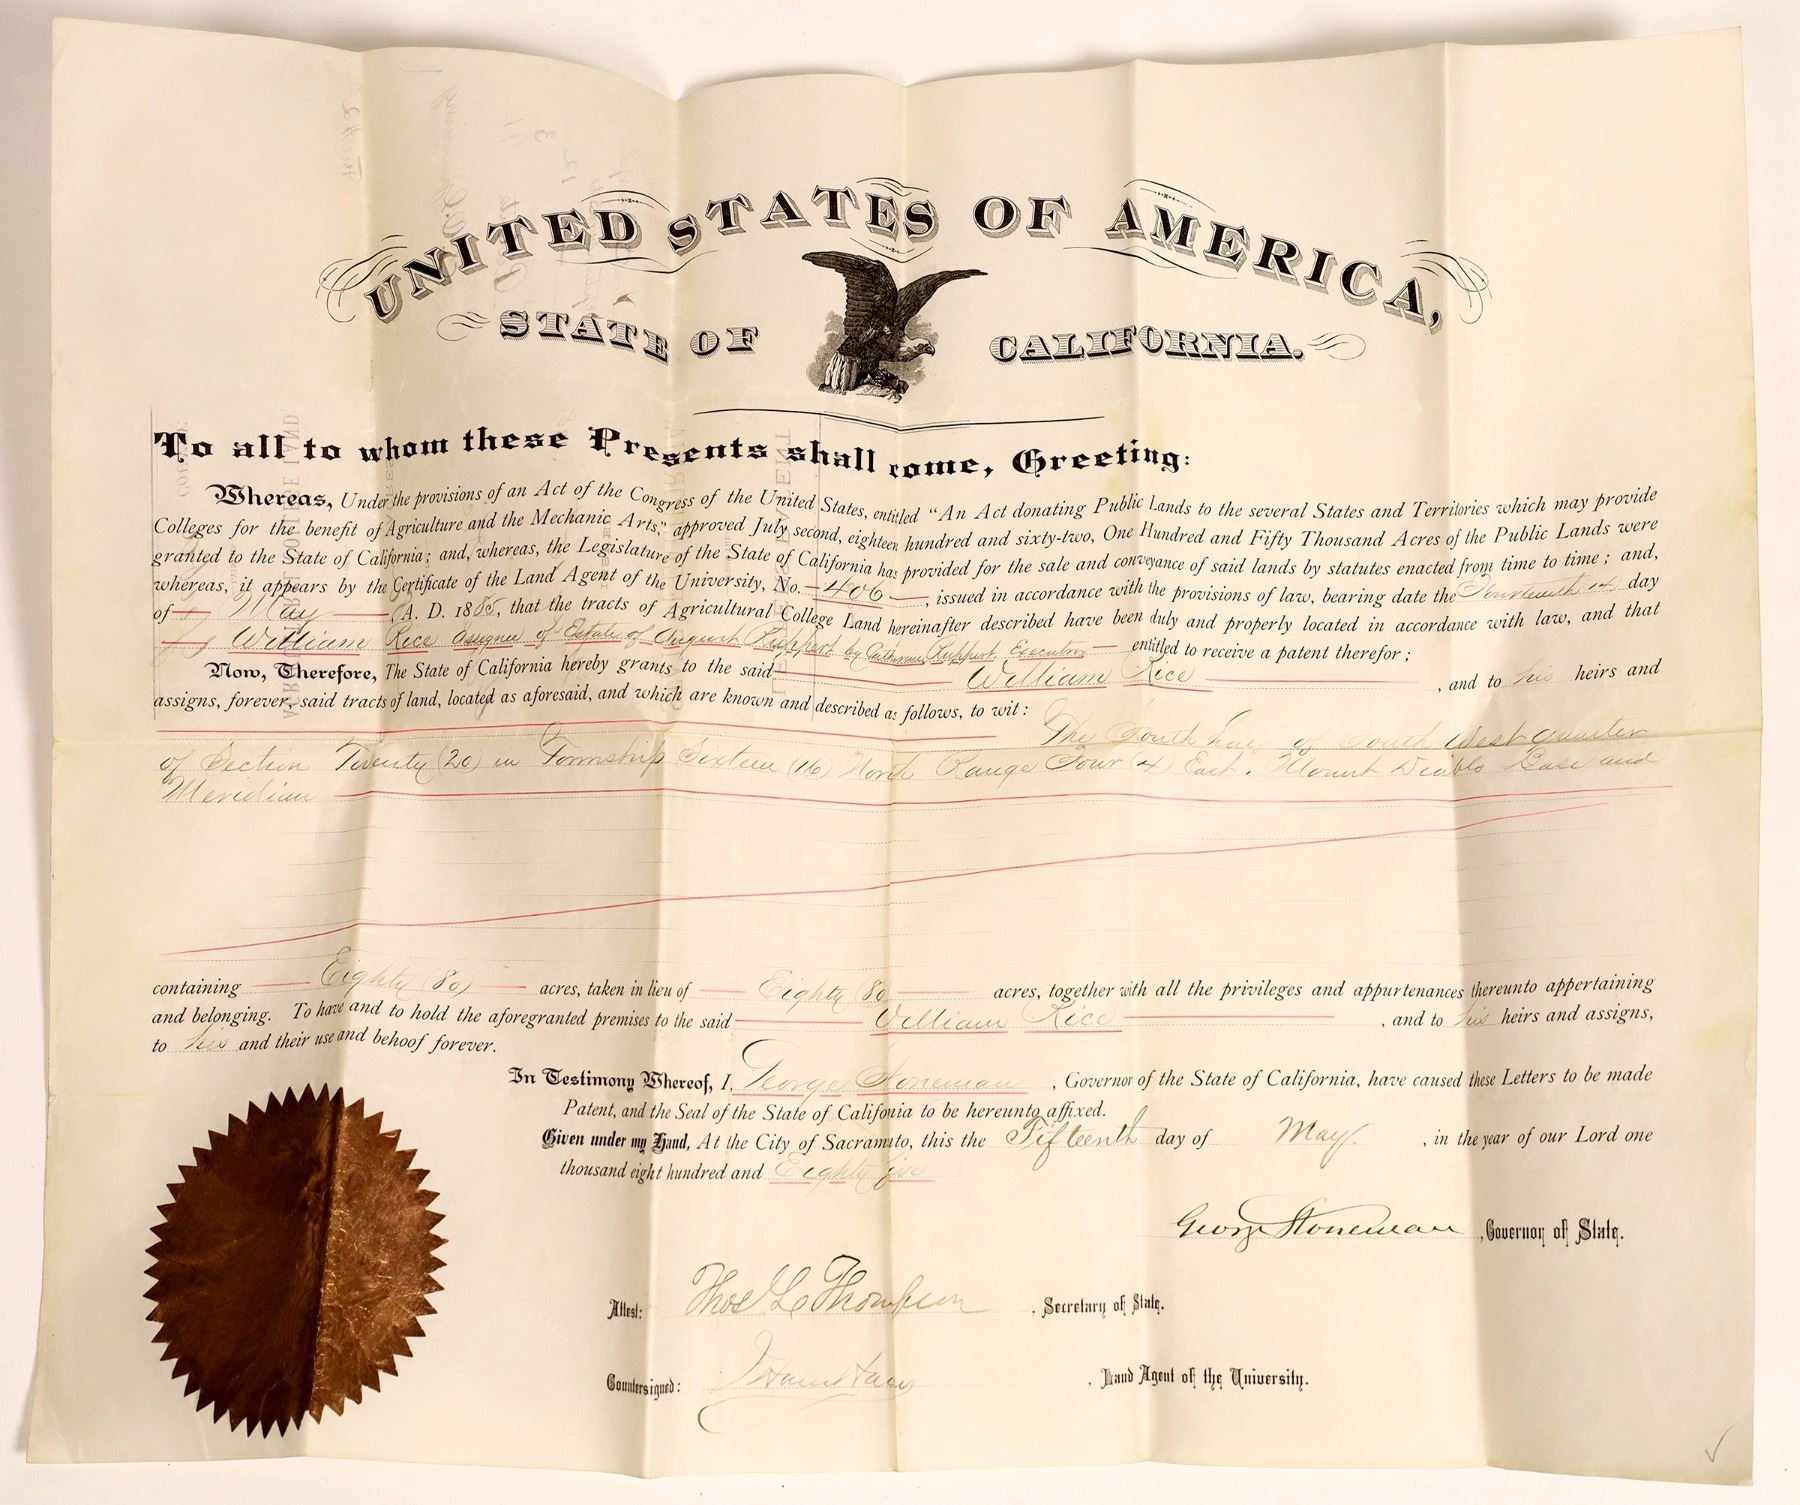 UNITED STATES OF AMERICA,
STATE OF CALIFORNIA.
To all to whom these Presents shall come, Greeting:
Whereas, Under the provisions of an Act of the Congress of the United States, entitled "An Act donating Public Lands to the several States and Territories which may provide
Colleges for the benefit of Agriculture and the Mechanic Arts," approved July second, eighteen hundred and sixty-two, One Hundred and Fifty Thousand Acres of the Public Lands were
granted to the State of California; and, whereas, the Legislature of the State of California has provided for the sale and conveyance of said lands by statutes enacted from time to time; and,
whereas, it appears by the Certificate of the Land Agent of the University, No. 406, issued in accordance with the provisions of law, bearing date the Fourteenth 14 day
of May A. D. 1885, that the tracts of Agricultural College Land hereinafter described have been duly and properly located in accordance with law, and that
William Rice Assignee of Estate of August Ruppert by Catherine Ruppert, Executrix entitled to receive a patent therefor;
Now, Therefore, The State of California hereby grants to the said William Rice, and to his heirs and
assigns, forever, said tracts of land, located as aforesaid, and which are known and described as follows, to wit: The South half of South West quarter
of Section Twenty (20) in Township Sixteen (16) North Range Four (4) East. Mount Diablo Base and
Meridian
containing Eighty (80) acres, taken in lieu of Eighty (80 acres, together with all the privileges and appurtenances thereunto appertaining
and belonging. To have and to hold the aforegranted premises to the said William Rice, and to his heirs and assigns,
to his and their use and behoof forever.
In Testimony Whereof, I, George Stoneman, Governor of the State of California, have caused these Letters to be made
Patent, and the Seal of the State of California to be hereunto affixed.
Given under my Hand, At the City of Sacramento, this the Fifteenth day of May, in the year of our Lord one
thousand eight hundred and Eighty five
George Stoneman, Governor of State.
Attest: Thos L Thompson. Secretary of State.
Countersigned: J Ham Harris. Land Agent of the University.